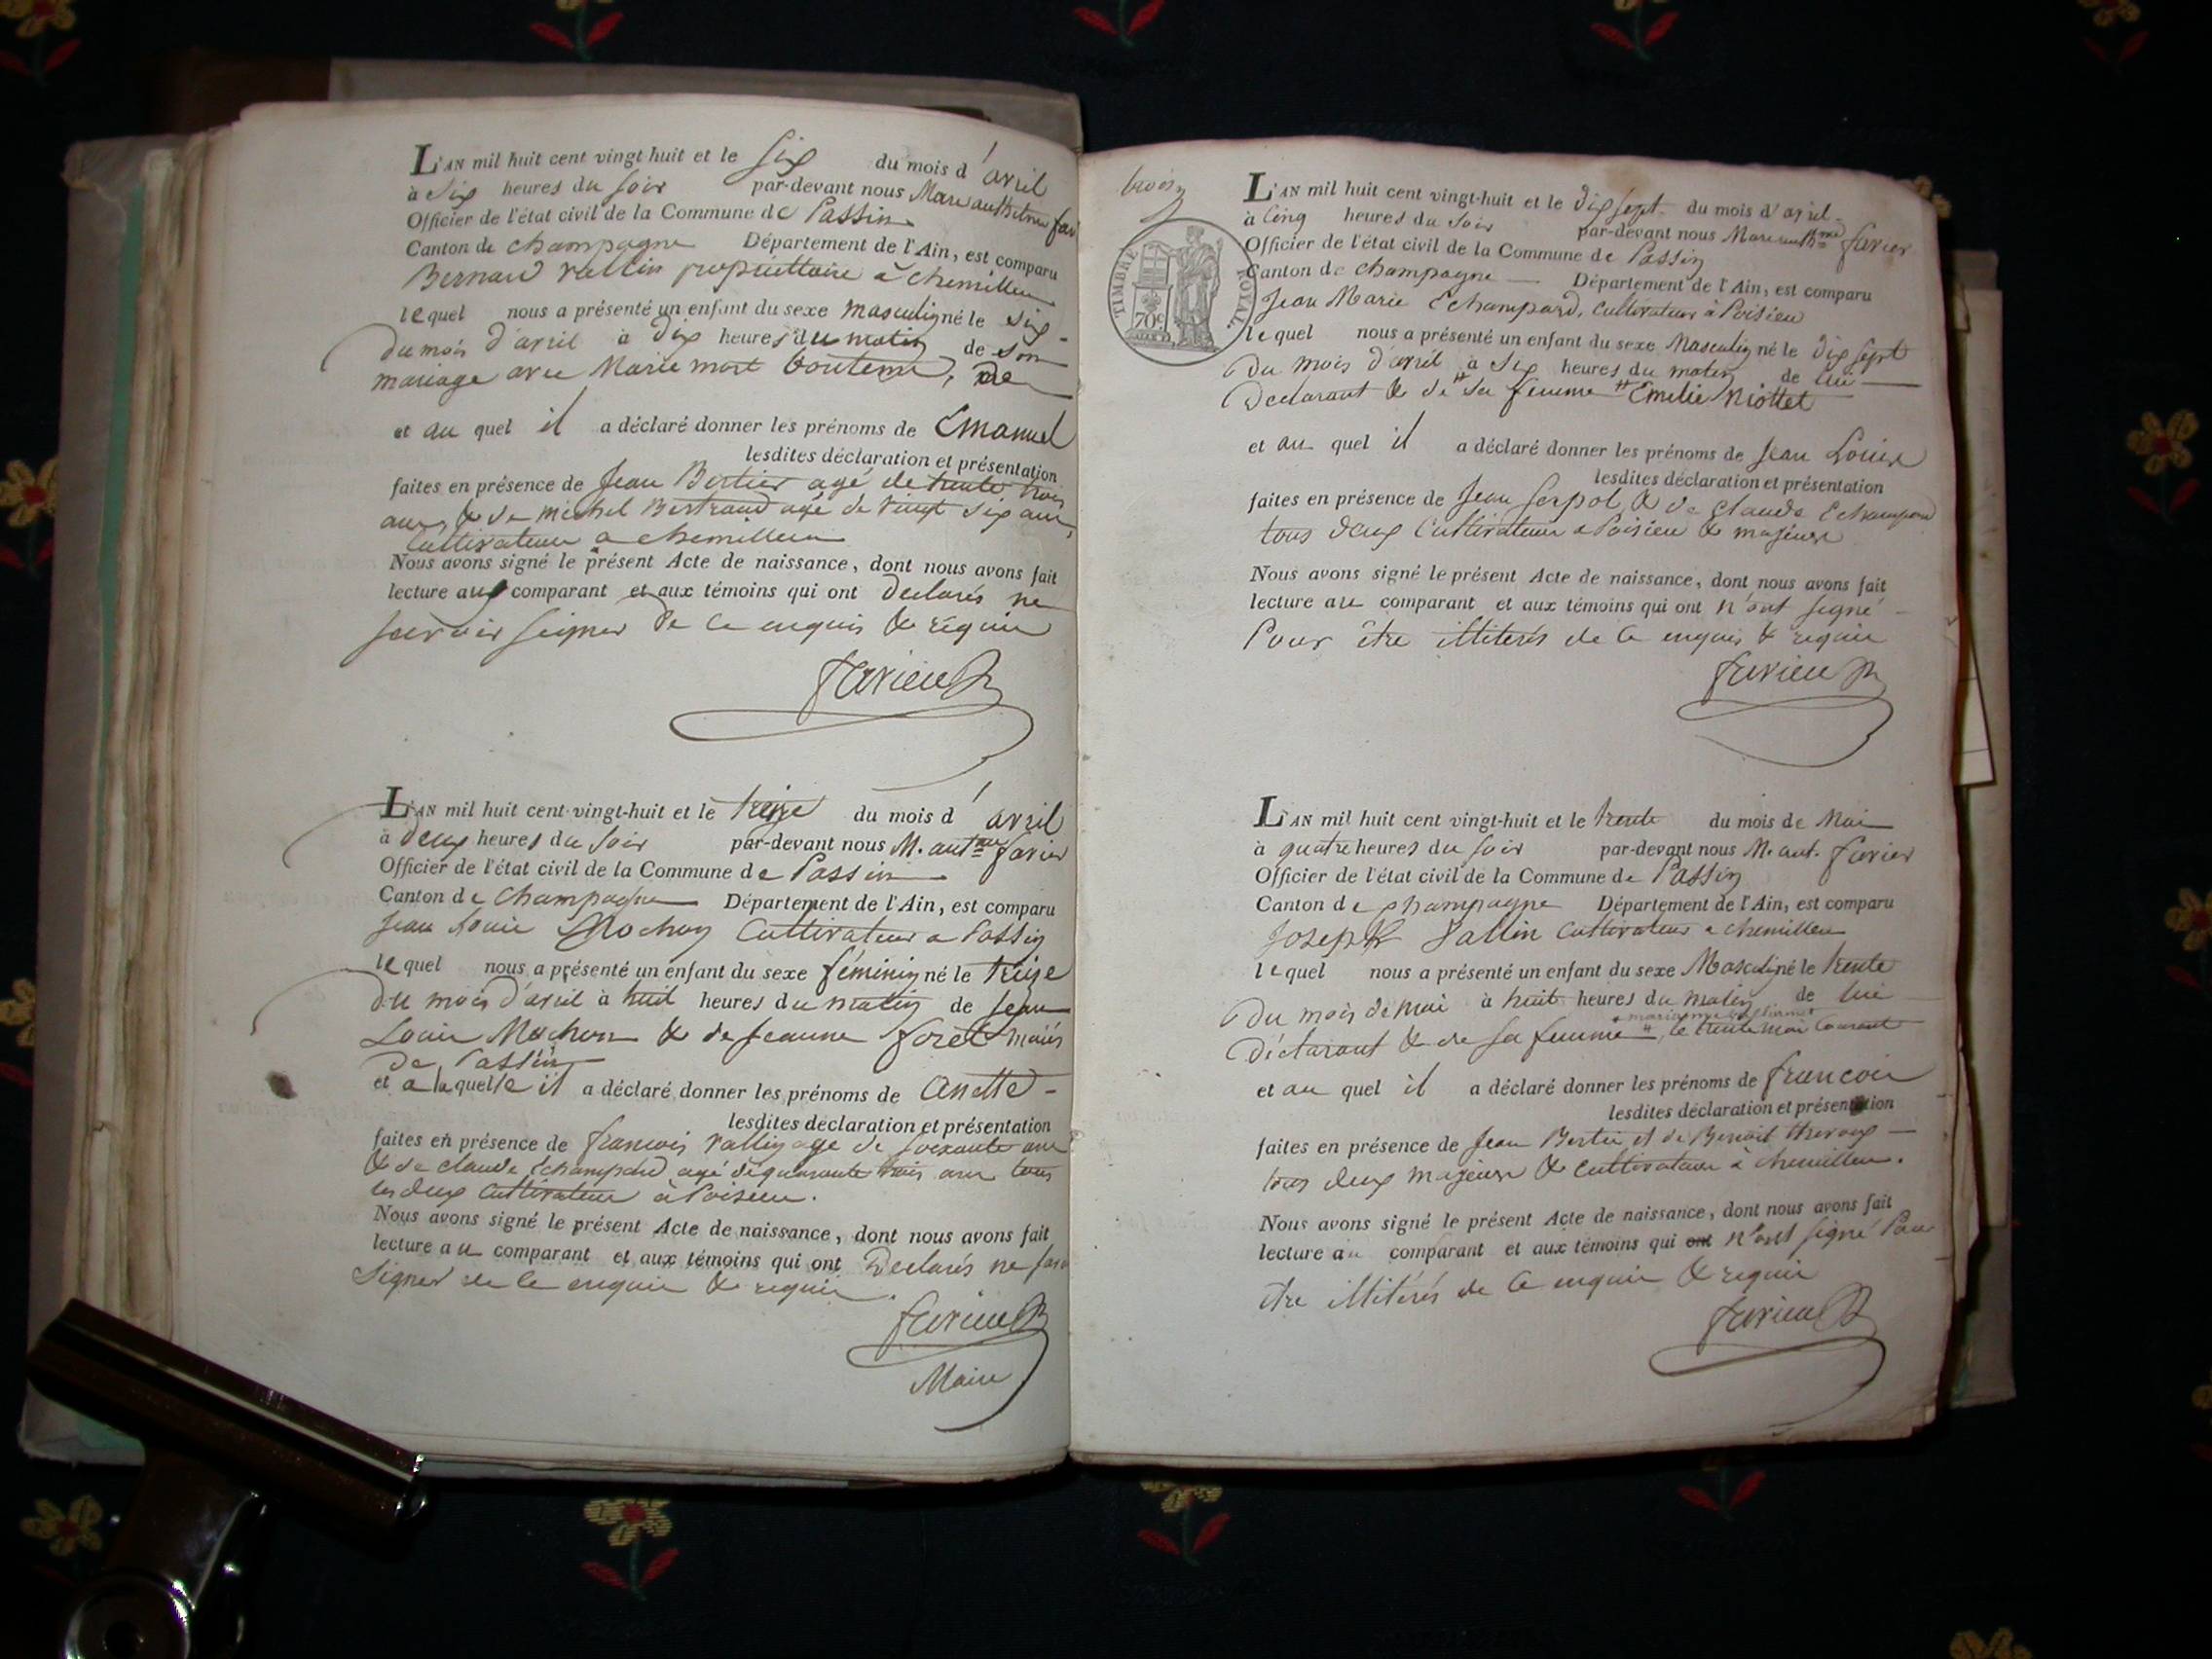 L'AN mil huit cent vingt huit et le six du mois d'avril
à six heures du soir par-devant nous Marc anthelme fav
Officier de l'état civil de la Commune de Passin
Canton de champagne Département de l'Ain, est comparu
Bernard vallin propriettaire à chemilleu
lequel nous a présenté un enfant du sexe masculin né le six
du mois d'avril à dix heures du matin de son
mariage avec Marie
et au quel il a déclaré donner les prénoms de Emanuel
lesdites déclaration et présentation
faites en présence de Jean Bertier agé de trente trois
ans, & de michel Bertrand agé de vingt six ans,
cultivateurs a chemilleu
Nous avons signé le présent Acte de naissance, dont nous avons fait
lecture aux comparant et aux témoins qui ont declarés ne
savoir seigner de ce enquis & réquis
favier
L'AN mil huit cent vingt-huit et le treize du mois d'avril
à deux heures du soir par-devant nous M. antme favier
Officier de l'état civil de la Commune de Passin
Canton de Champagne Département de l'Ain, est comparu
Jean Louis Mochon Cultivateur a Passin
lequel nous a présenté un enfant du sexe féminin né le treize
du mois d'avril à huit heures du matin de Jean
Louis Mochon & de Jeanne foret mariés
de Passin
et a laquelle il a déclaré donner les prénoms de Anette
lesdites déclaration et présentation
faites en présence de francois vallin age de soixante ans
& de claude Echampard agé de quarante trois ans tous
les deux cultivateurs à Poisieu.
Nous avons signé le présent Acte de naissance, dont nous avons fait
lecture au comparant et aux témoins qui ont Declarés ne
signer de ce enquis & requis.
favier
Maire
TIMBRE ROYAL.
70c
L'AN mil huit cent vingt-huit et le dix sept du mois d'avril
à cinq heures du soir par-devant nous Marc anthme favier
Officier de l'état civil de la Commune de Passin
Canton de champagne Département de l'Ain, est comparu
Jean Marie Echampard, cultivateur à Poisieu
lequel nous a présenté un enfant du sexe Masculin né le dix sept
du mois d'avril à six heures du matin de lui
Declarant & de sa femme Emelie Niottet
et au quel il a déclaré donner les prénoms de Jean Louis
lesdites déclaration et présentation
faites en présence de Jean Serpol & de Claude Echampard
tous deux Cultivateurs a Poisieu & majeurs
Nous avons signé le présent Acte de naissance, dont nous avons fait
lecture au comparant et aux témoins qui ont n'ont segné
Pour être illiterés de ce enquis & requis
favier
L'AN mil huit cent vingt-huit et le trente du mois de Mai
à quatre heures du soir par-devant nous M. ant. favier
Officier de l'état civil de la Commune de Passin
Canton de champagne Département de l'Ain, est comparu
Joseph Vallin cultivateur a chemilleu
lequel nous a présenté un enfant du sexe Masculin né le trente
du mois de mai à huit heures du matin de lui
déclarant & de sa femme le trente mai courant
et au quel il a déclaré donner les prénoms de francois
lesdites déclaration et présentation
faites en présence de Jean Bertier et de Benoit
tous deux majeurs & cultivateurs à chemilleu.
Nous avons signé le présent Acte de naissance, dont nous avons fait
lecture au comparant et aux témoins qui ont n'ont signé Pour
être illitérés de ce enquis & requis
favier